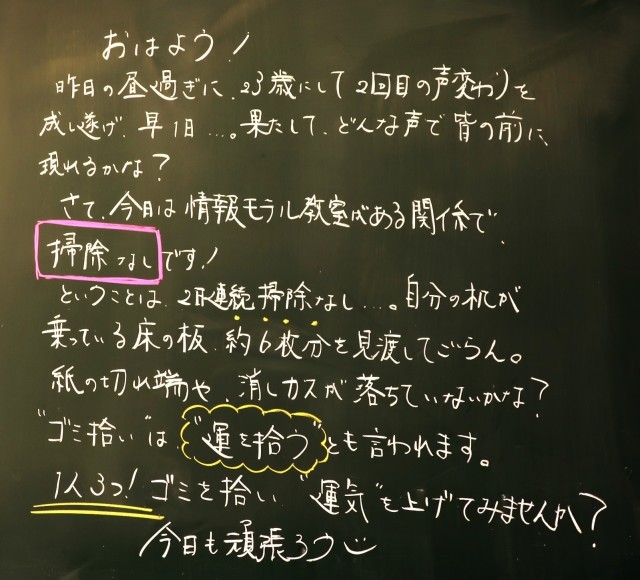 おはよう!
昨日の昼過ぎに、23歳にして(2回目の声変わり)を
成し遂げ、早1日...。果たして、どんな声で皆の前に
現れるかな?
さて、今日は情報モラル教室がある関係で、
掃除なしです!
ということは、2日連続掃除なし...。自分の机が
乗っている床の板、約6枚分を見渡してごらん。
紙の切れ端や、消しカスが落ちていないかな?
"ゴミ拾い"は"運を拾う"とも言われます。
1人3つ!ゴミを拾い"運気"を上げてみませんか?
今日も頑張ろう